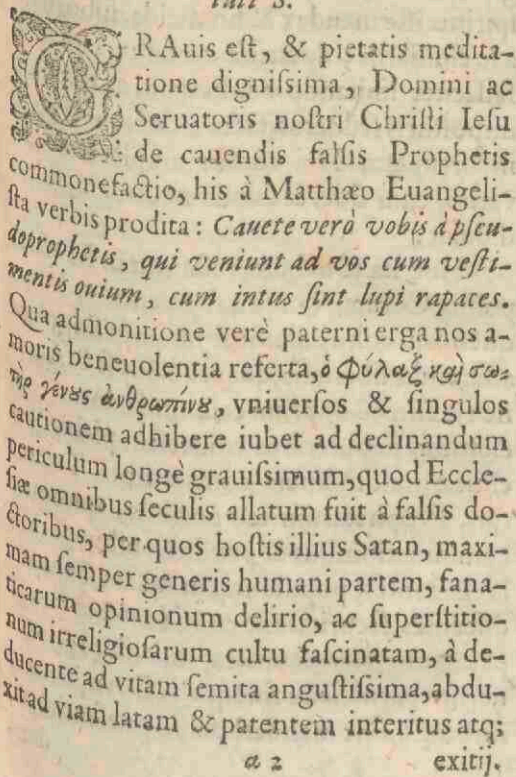 GRAuis eſt, & pietatis medita-
tione digniſsima, Domini ac
Seruatoris noſtri Chriſti Ieſu
de cauendis falſis Prophetis
commonefactio, his à Matthæo Euangeli-
ſta verbis prodita: Cauete verò vobis à pſeu-
doprophetis, qui veniunt ad vos cum veſti-
mentis ouium, cum intus ſint lupi rapaces.
Qua admonitione verè paterni erga nos a-
moris beneuolentia referta, ὁ φύλαξ καὶ σω-
τὴρ γένους ἀνθρωπίνου, vniuerſos & ſingulos
cautionem adhibere iubet ad declinandum
periculum longè grauiſsimum, quod Eccle-
ſiæ omnibus ſeculis allatum fuit à falſis do-
ctoribus, per quos hoſtis illius Satan, maxi-
mam ſemper generis humani partem, fana-
ticarum opinionum delirio, ac ſuperſtitio-
num irreligioſarum cultu faſcinatam, à de-
ducente ad vitam ſemita anguſtiſsima, abdu-
xit ad viam latam & patentem interitus atq;
a 2 exitij.